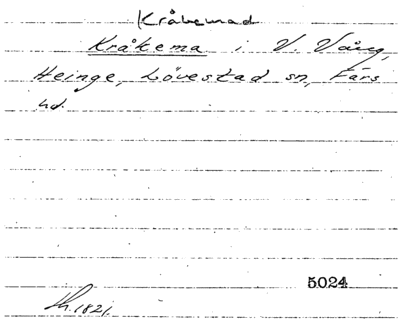 Kråkemad
Kråkema i V. Vång,
Heinge, Lövestad sn, Färs
hd.
5024
Lh. 1821.